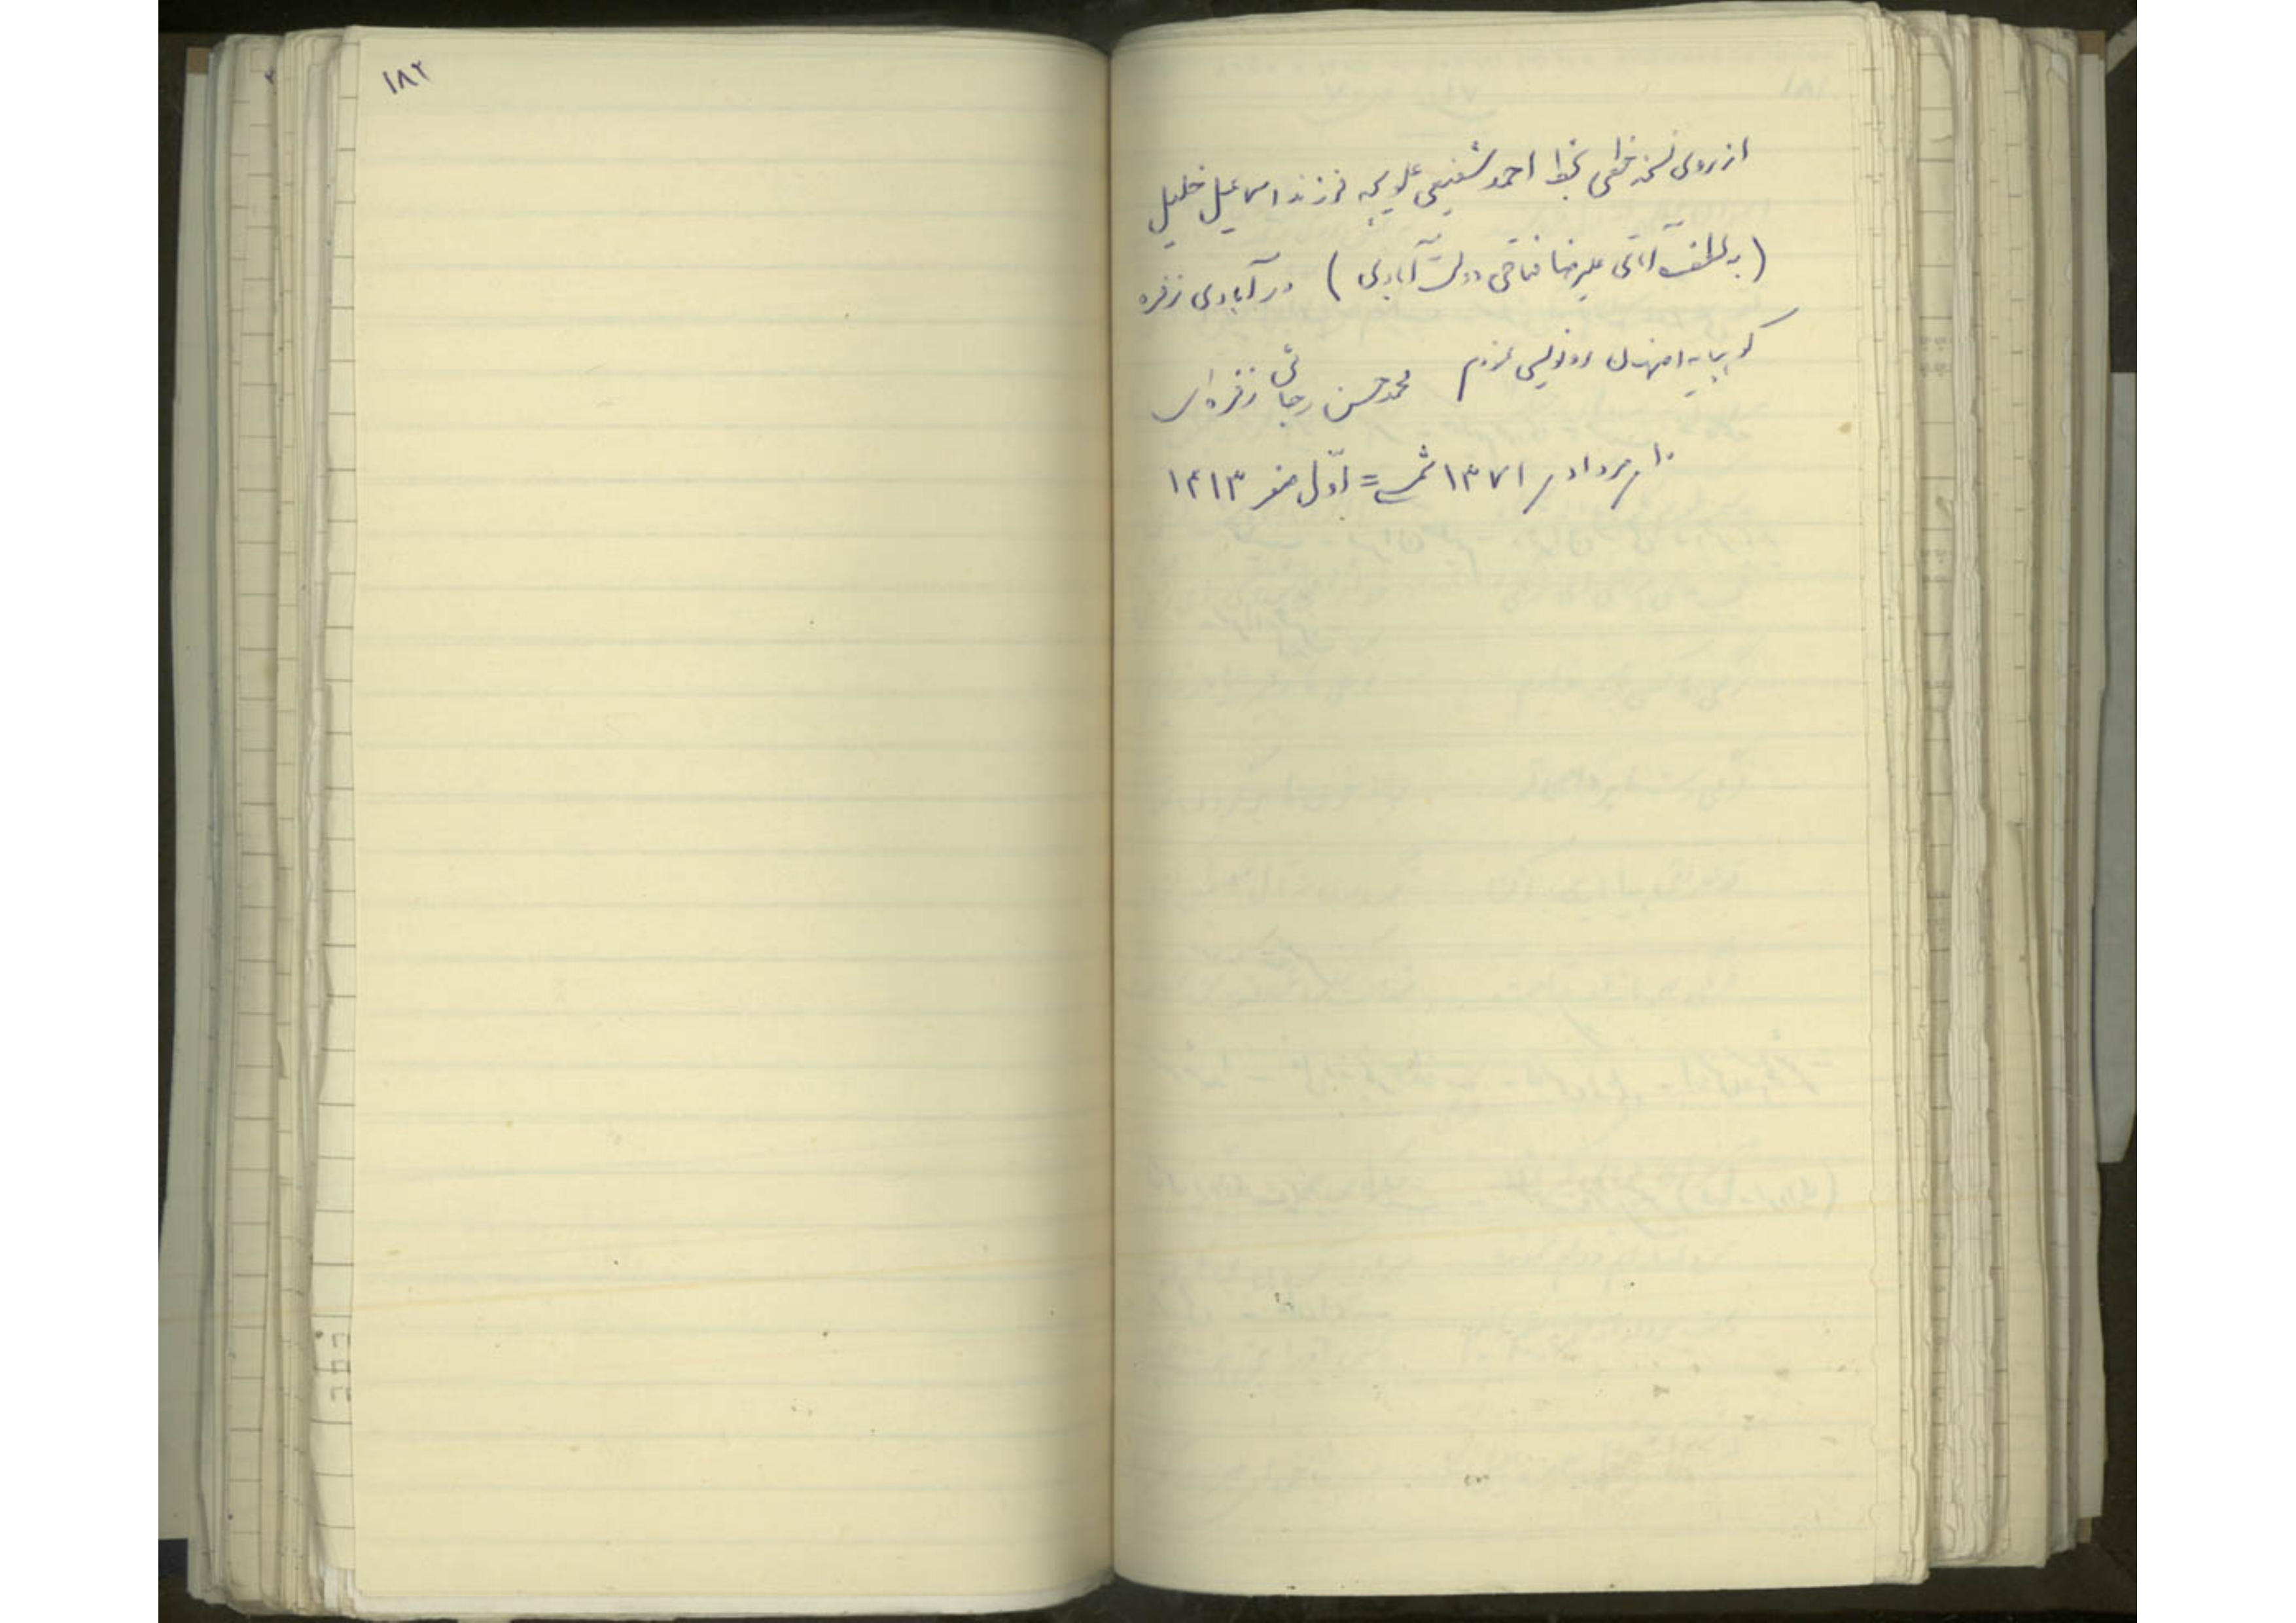 از روی نسخه خطی بخط احمد شفیعی علویجه فرزند اسماعیل خلیل
(به لطف آقای علیرضا فتاحی دولت آبادی) در آبادی زفره
کوهپایه اصفهان رونویسی کردم محمد حسن رجائی زفره‌ای
۱۰ مرداد ۱۳۷۱ شمسی = اوّل صفر ۱۴۱۳
۱۸۲